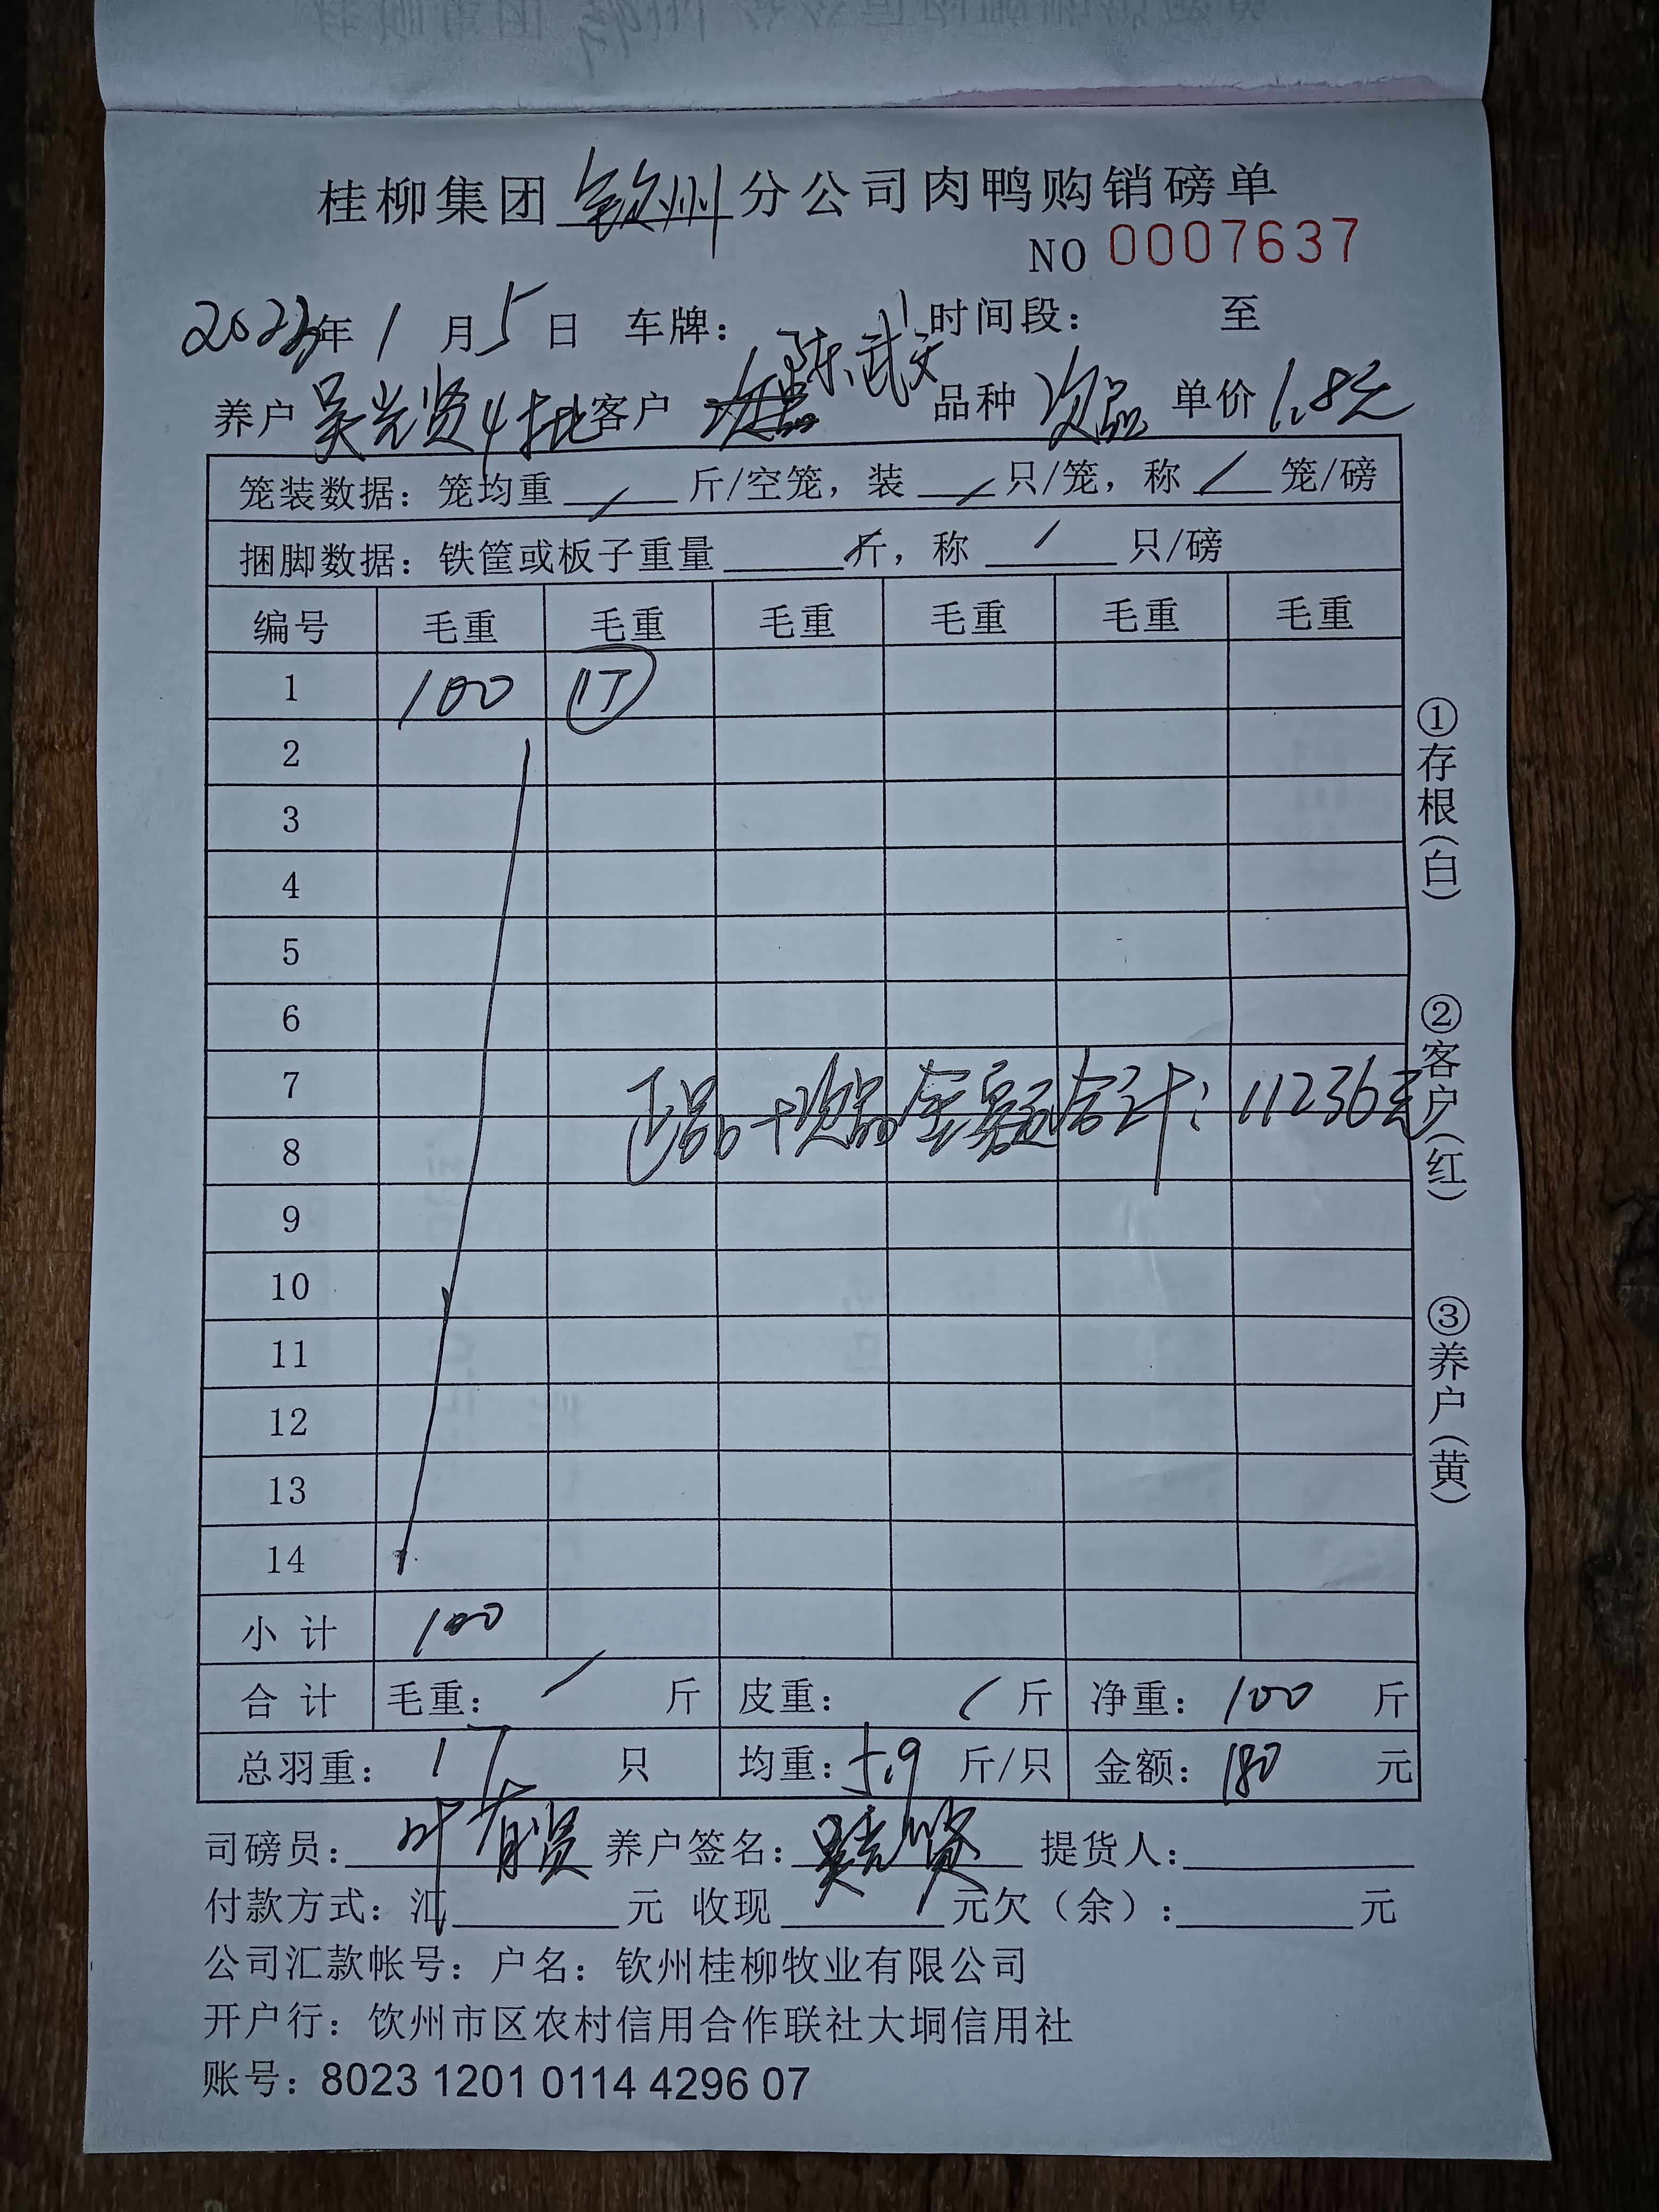 桂柳集团 钦州 分公司肉鸭购销磅单
NO 0007637
2023年 1 月 5 日 车牌： 时间段： 至
养户 吴光贤4批 客户 陈武文 品种 次品 单价 1.8元
笼装数据：笼均重 / 斤/空笼，装 / 只/笼，称 / 笼/磅
捆脚数据：铁筐或板子重量 / 斤，称 / 只/磅
编号 毛重 毛重 毛重 毛重 毛重 毛重
1 100 17
2
3
4
5
6
7
正品+次品金额合计：11236元
8
9
10
11
12
13
14
小计 100
合计 毛重： / 斤 皮重： / 斤 净重：100 斤
总羽重：17 只 均重：5.9 斤/只 金额：180 元
司磅员：叶有贤 养户签名：吴光贤 提货人：
付款方式：汇 元 收现 元欠（余）： 元
公司汇款帐号：户名：钦州桂柳牧业有限公司
开户行：钦州市区农村信用合作联社大垌信用社
账号：8023 1201 0114 4296 07
①存根（白）
②客户（红）
③养户（黄）